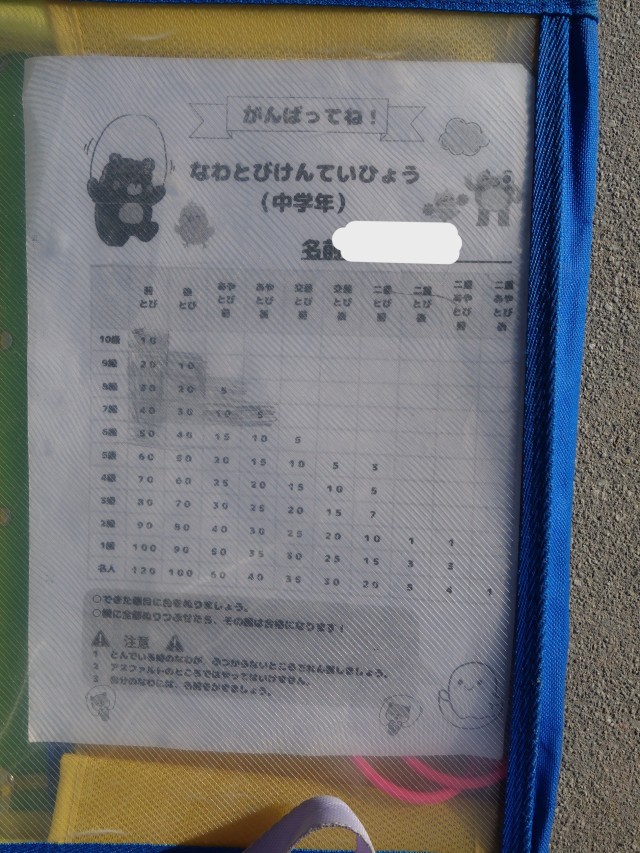 がんばってね！
なわとびけんていひょう
（中学年）
名前
前とび 後とび あやとび前 あやとび後 交差とび前 交差とび後 二重とび前 二重とび後 二重あやとび前 二重あやとび後
10級 10
9級 20 10
8級 30 20 5
7級 40 30 10 5
6級 50 40 15 10 5
5級 60 50 20 15 10 5 3
4級 70 60 25 20 15 10 5
3級 80 70 30 25 20 15 7
2級 90 80 40 30 25 20 10 1 1
1級 100 90 50 35 30 25 15 3 3
名人 120 100 60 40 35 30 20 5 4 1
○できた種目に色をぬりましょう。
○級に全部ぬりつぶせたら、その級は合格になります！
注意
1 とんでいる時のなわが、ぶつからないところでれん習しましょう。
2 アスファルトのところではやってはいけません。
3 自分のなわには、名前をかきましょう。